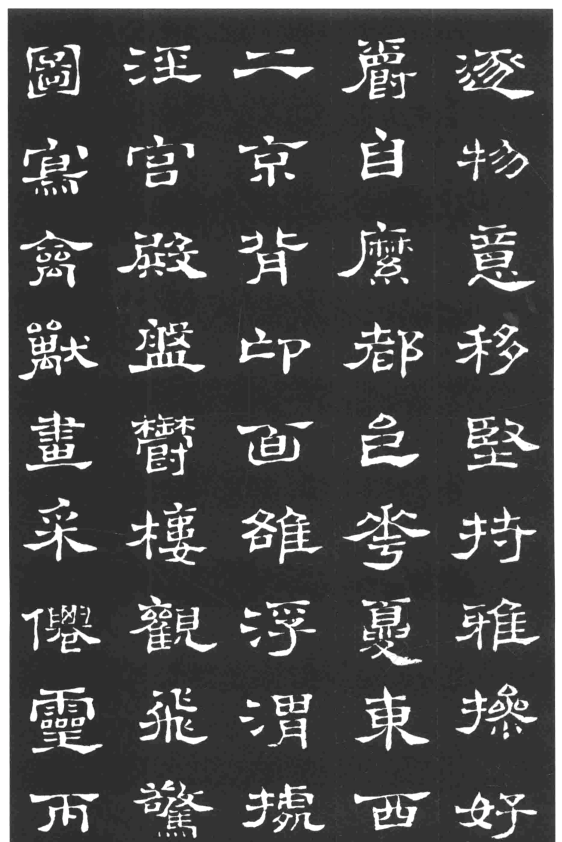 逐物意移堅持雅操好
爵自縻都邑華夏東西
二京背邙面雒浮渭據
涇宮殿盤鬱樓觀飛驚
圖寫禽獸畫采僊靈丙